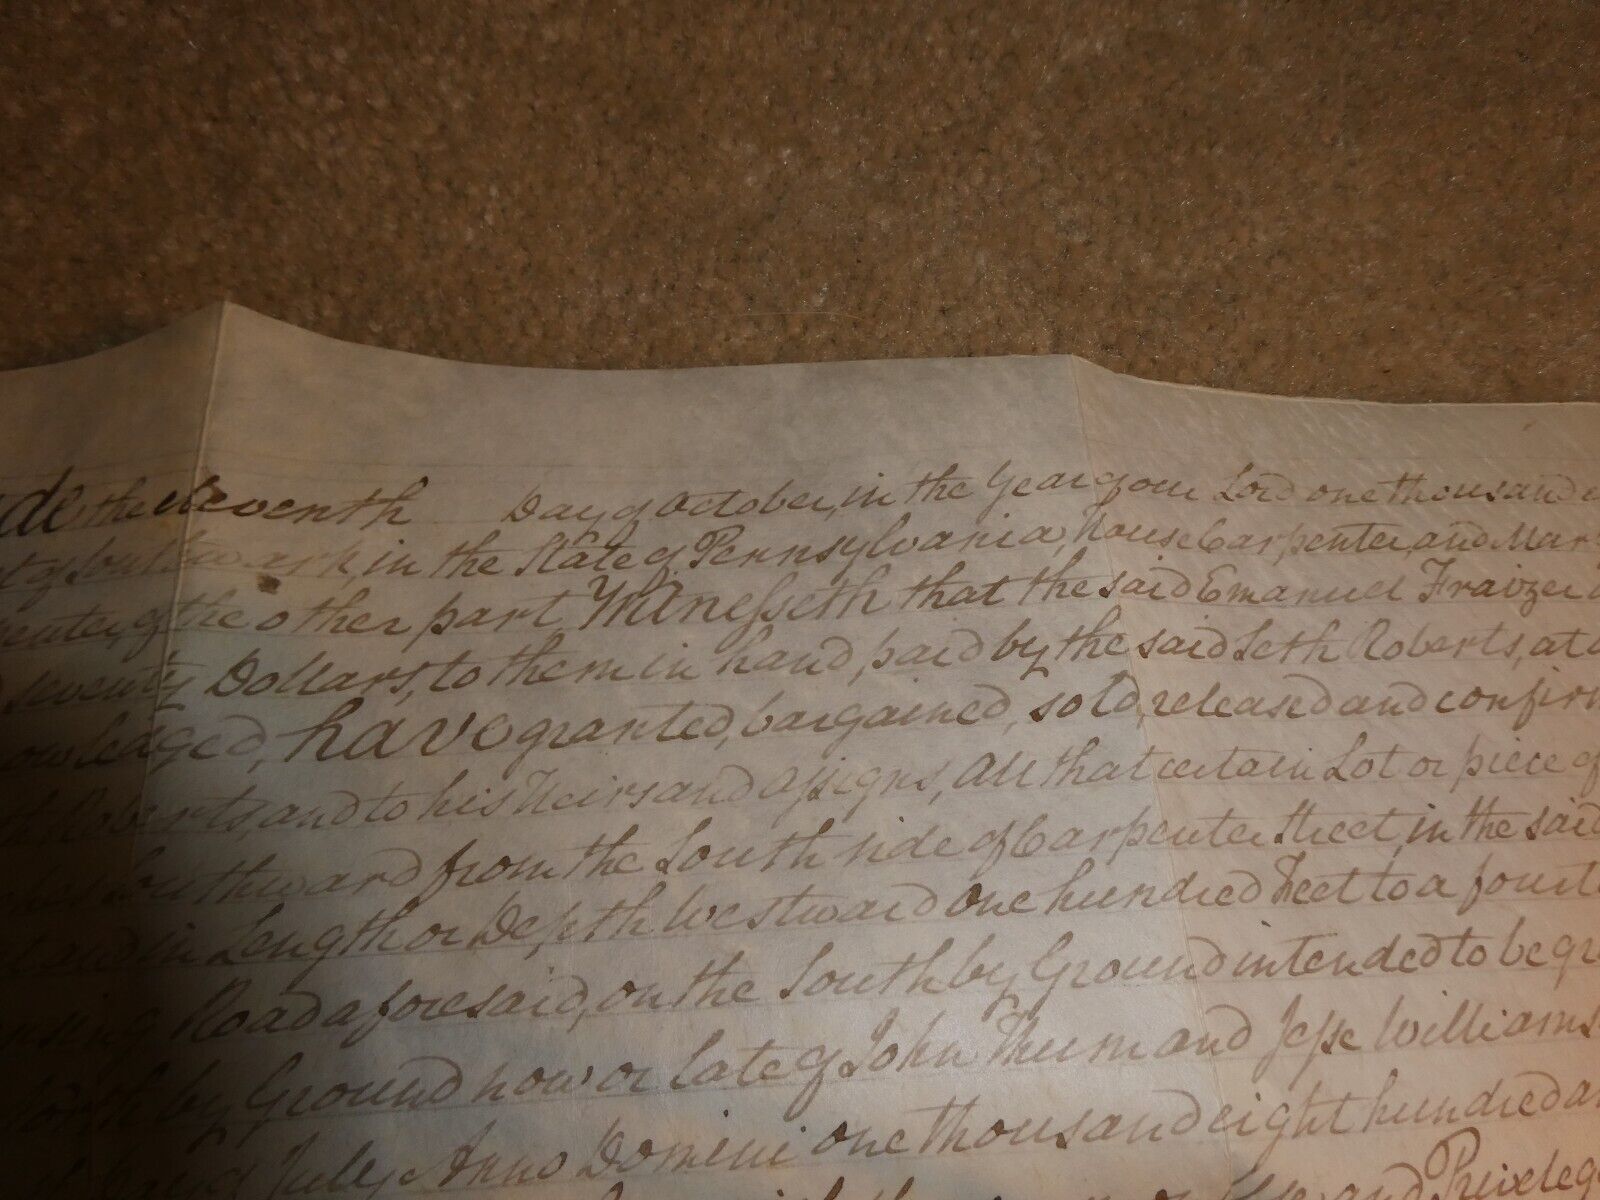 de the eleventh Day of October, in the Year of our Lord one thousand
of Southwark, in the State of Pennsylvania, House Carpenter, and Mar
penter, of the other part, Witnesseth that the said Emanuel Fraizer
seventy Dollars, to them in hand, paid by the said Seth Roberts, at
owledged, have granted, bargained, sold, released and confirm
th Roberts, and to his Heirs and Assigns, All that certain Lot or piece of
Southward from the South side of Carpenter Street, in the said
and in Length or Depth Westward One hundred Feet to a fourte
Road aforesaid, on the South by Ground intended to be gr
North by Ground now or late of John Thum and Jesse Williams
July, Anno Domini one thousand eight hundred an
and Privileg